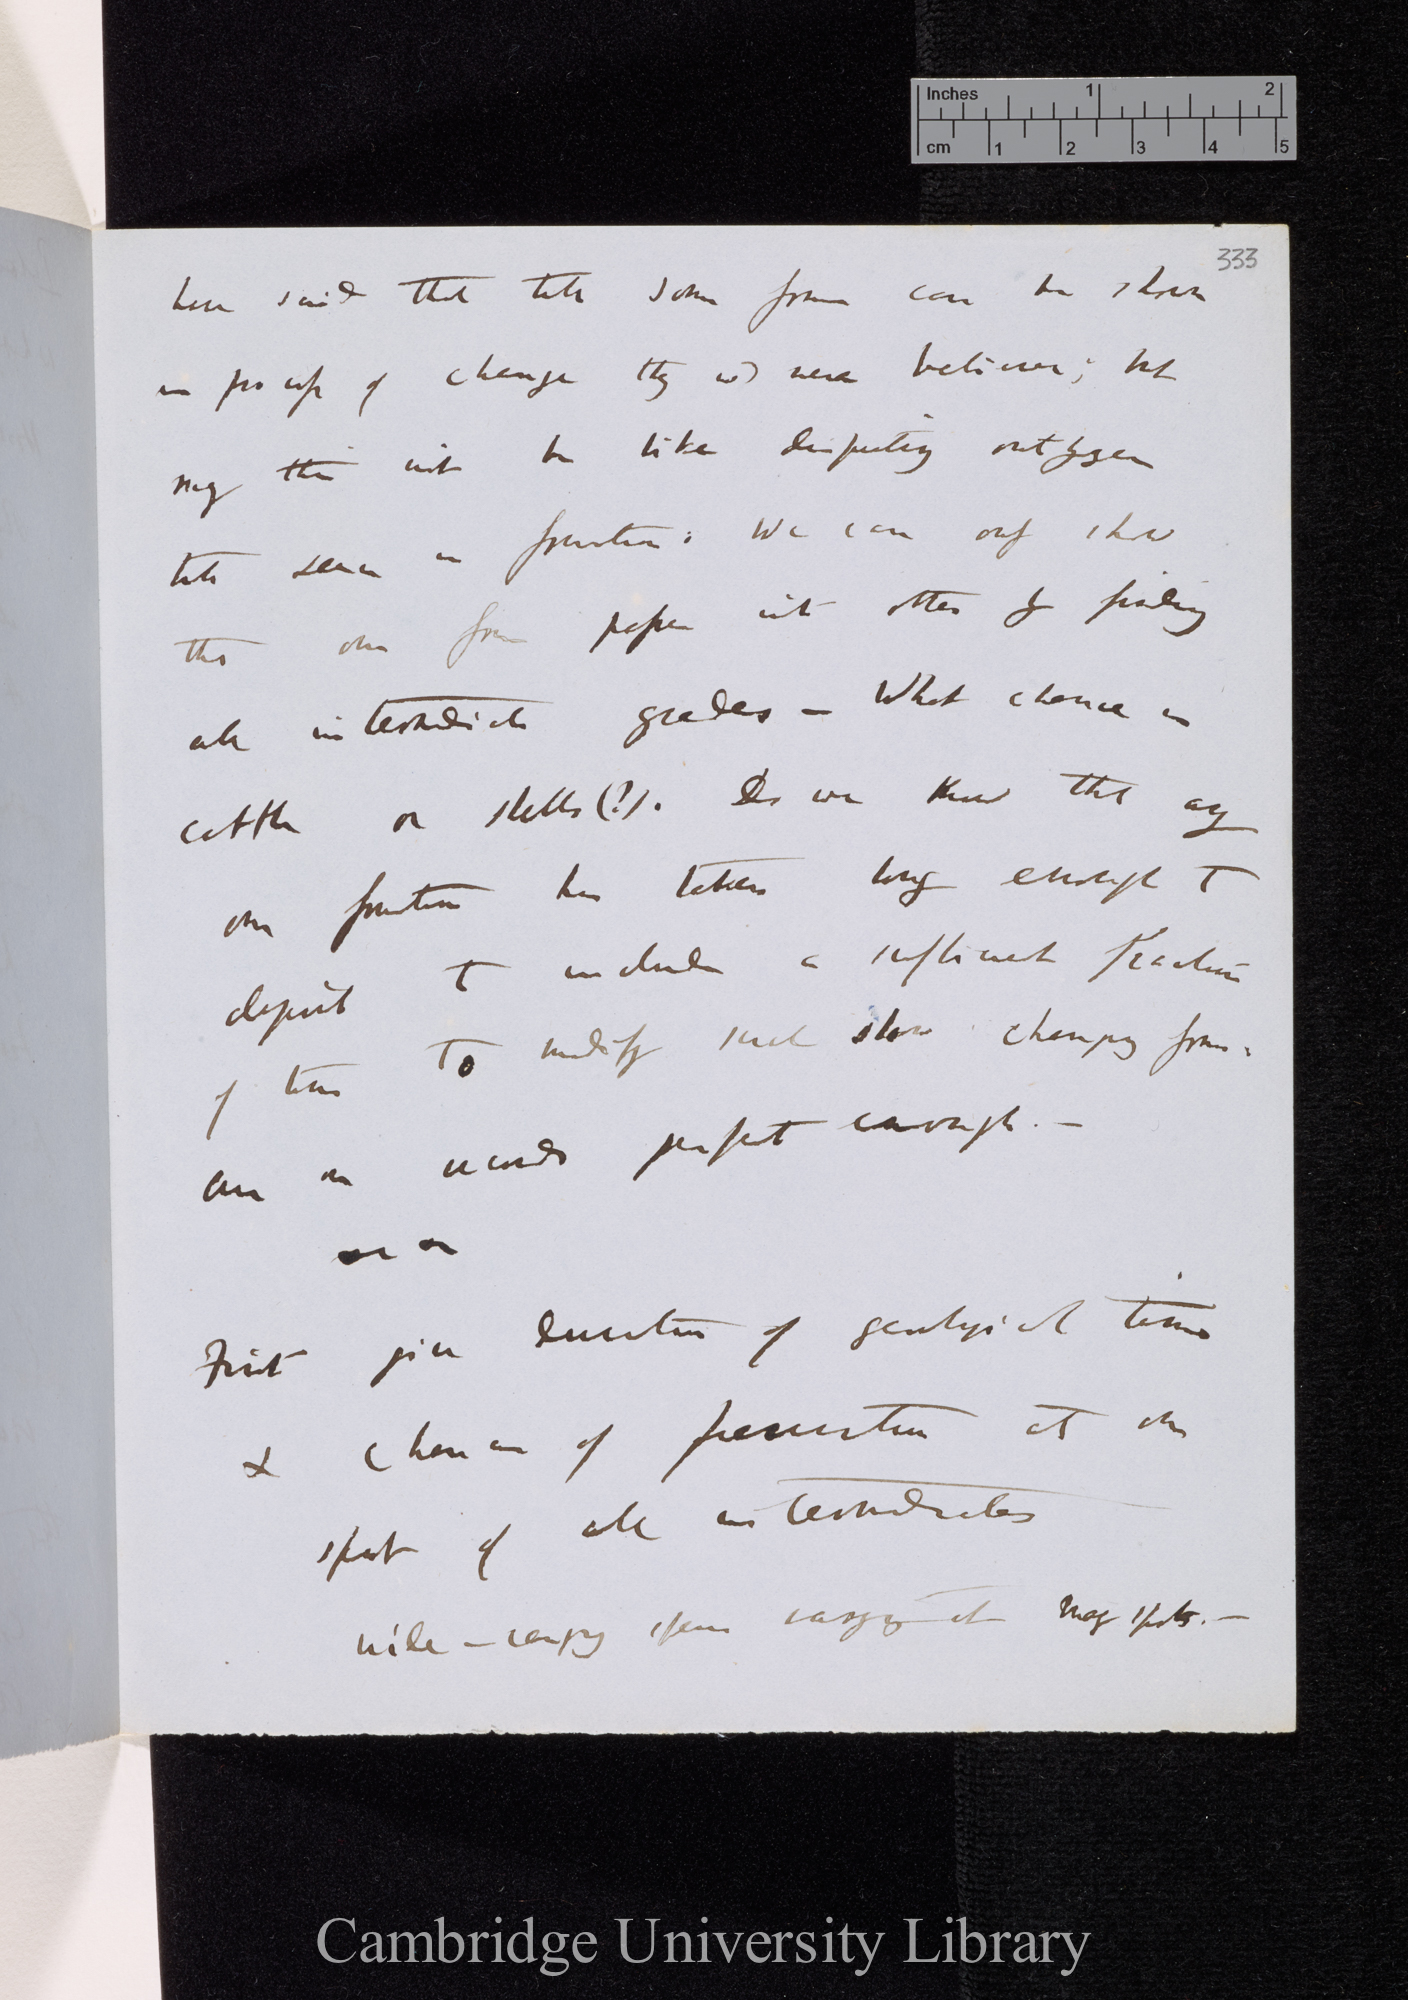 Inches 1 2
cm 1 2 3 4 5
333
have said that till some forms can be shown
in process of change they wd never believe; but
may this not be like disputing
till seen in formation: We can only show
that one form passes into other by finding
all intermediate grades — What chance in
cattle or shells (?). Do we know that any
one formation has taken long enough to
deposit to include a sufficient fraction
of time to modify such slow changing forms.
are our records perfect enough. —
First give duration of geological time
& chance of preservation at one
spot of all intermediates
wide-ranging species varying at many spots. —
Cambridge University Library